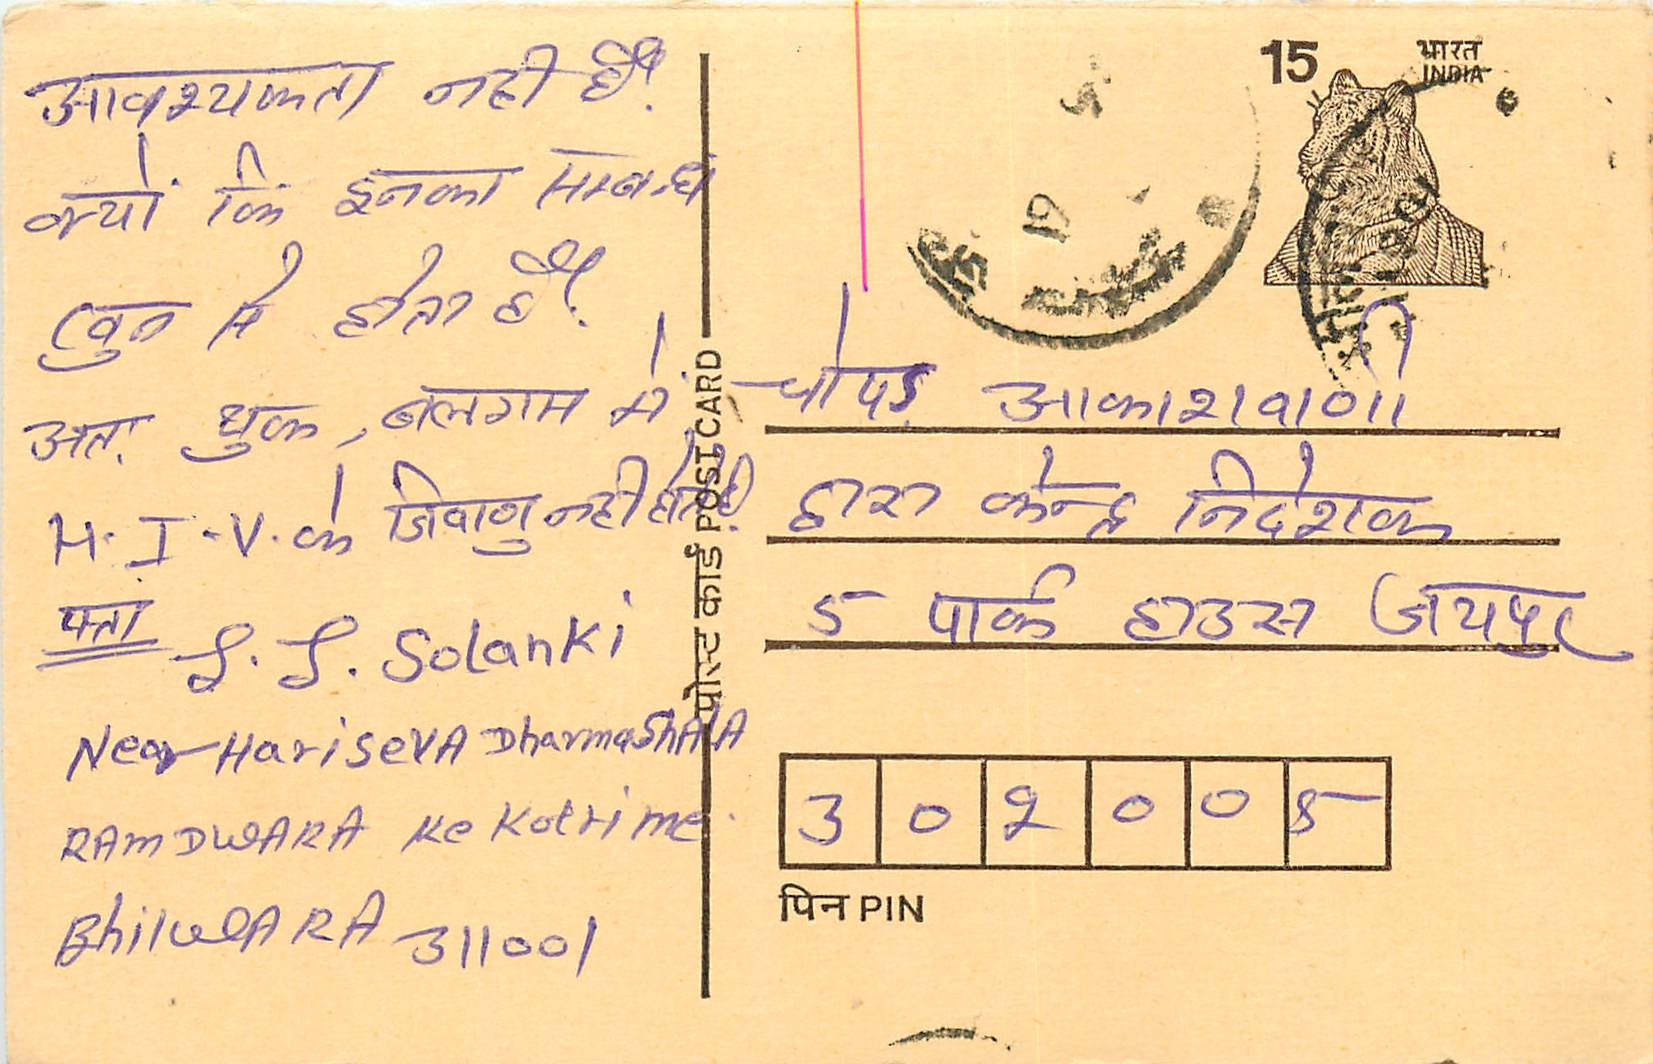 आवश्यकता नही है।
क्यों कि इनका सम्बन्ध
खुन मे होता है।
अतः थुक, बलगाम में
H.I.V. के जिवाणु नही होते है।
पत्ता
L. L. Solanki
Near HarisevA DharmaShAlA
RAmDWARA Ke Kotri me
BhilwARA 311001
पोस्ट कार्ड POST CARD
15
भारत
INDIA
चोपड़ आकाशवाणी
द्वारा केन्द्र निदेशक
5 पार्क हाउस जयपुर
302005
पिन PIN